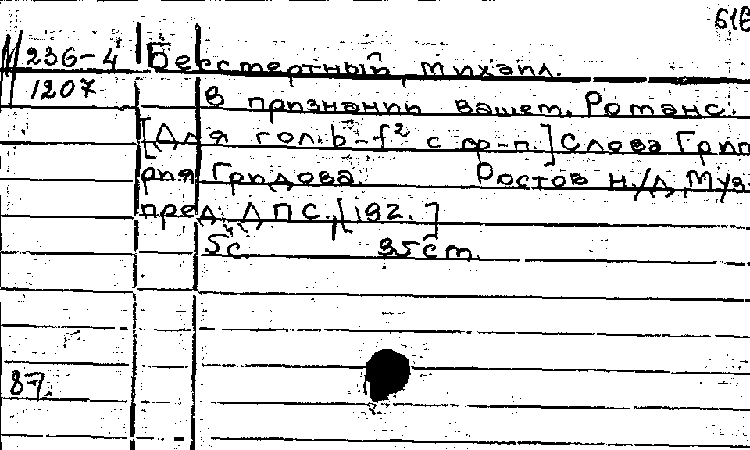 616
М 236-4 Бессмертный, Михаил.
1207 В признании вашем. Романс.
[Для гол. b-f² с ф-п.] Слова Григо
рия Гридова. Ростов н/Д, Муз
пред. ДПС, [192. ]
5с. 35см.
87.